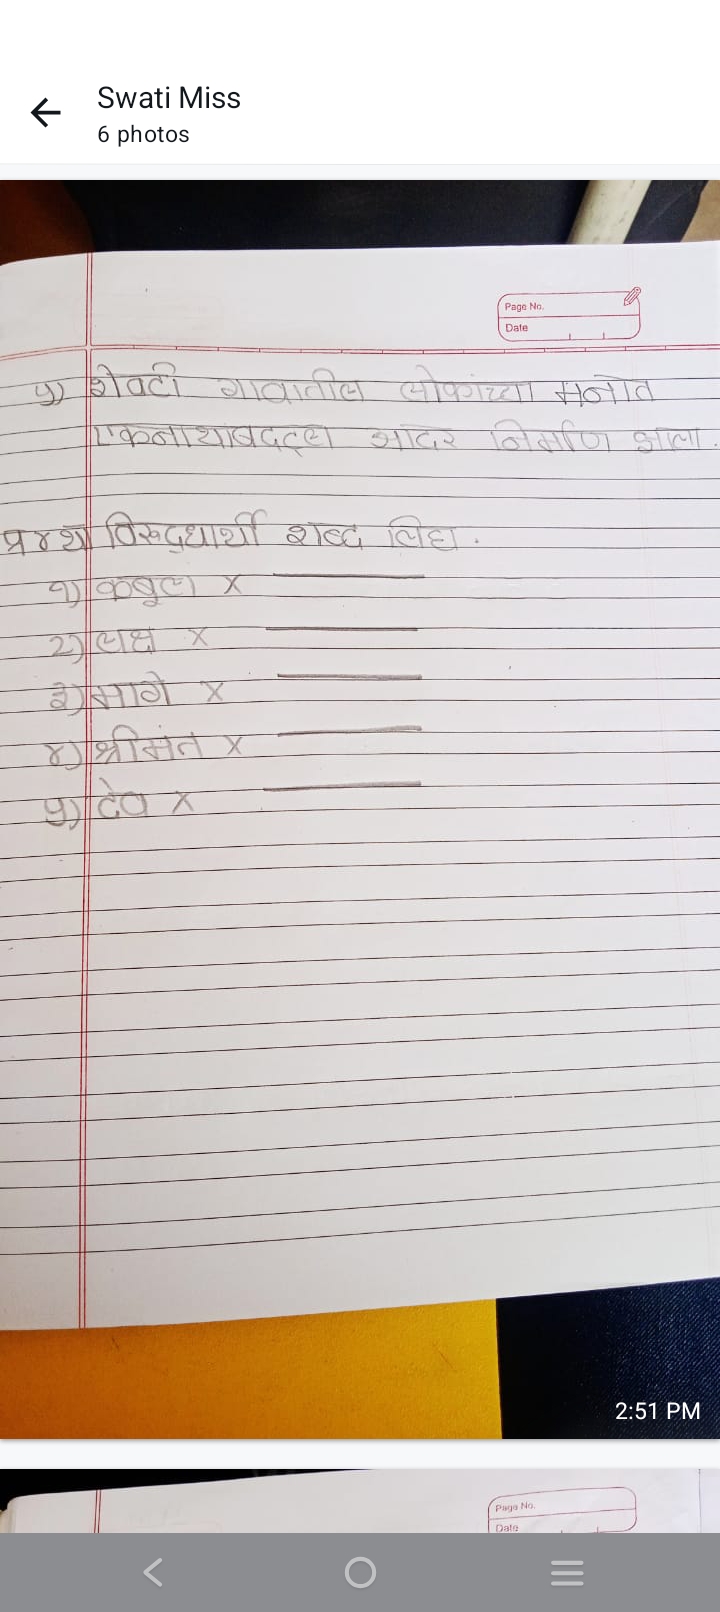 Swati Miss
6 photos
Page No.
Date
५) शेवटी गावातील लोकांच्या मनात
एकनाथाबद्दल आदर निर्माण झाला.
प्र४था विरुद्धार्थी शब्द लिहा.
१) कबुल x
२) लक्ष x
३) मागे x
४) श्रीमंत x
५) देव x
2:51 PM
Page No.
Date